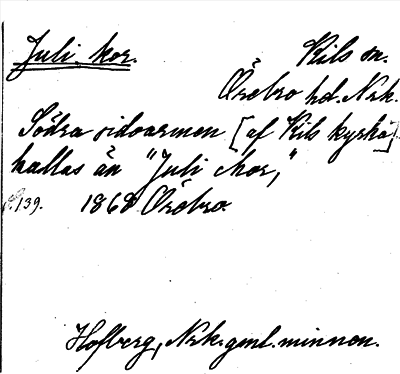 Juli kor.
Kils sn.
Örebro hd. Nrk.
Södra sidoarmen [af Kils kyrka]
kallas än "Juli kor,"
s. 139. 1868 Örebro.
Hofberg, Nrk. gml. minnen.